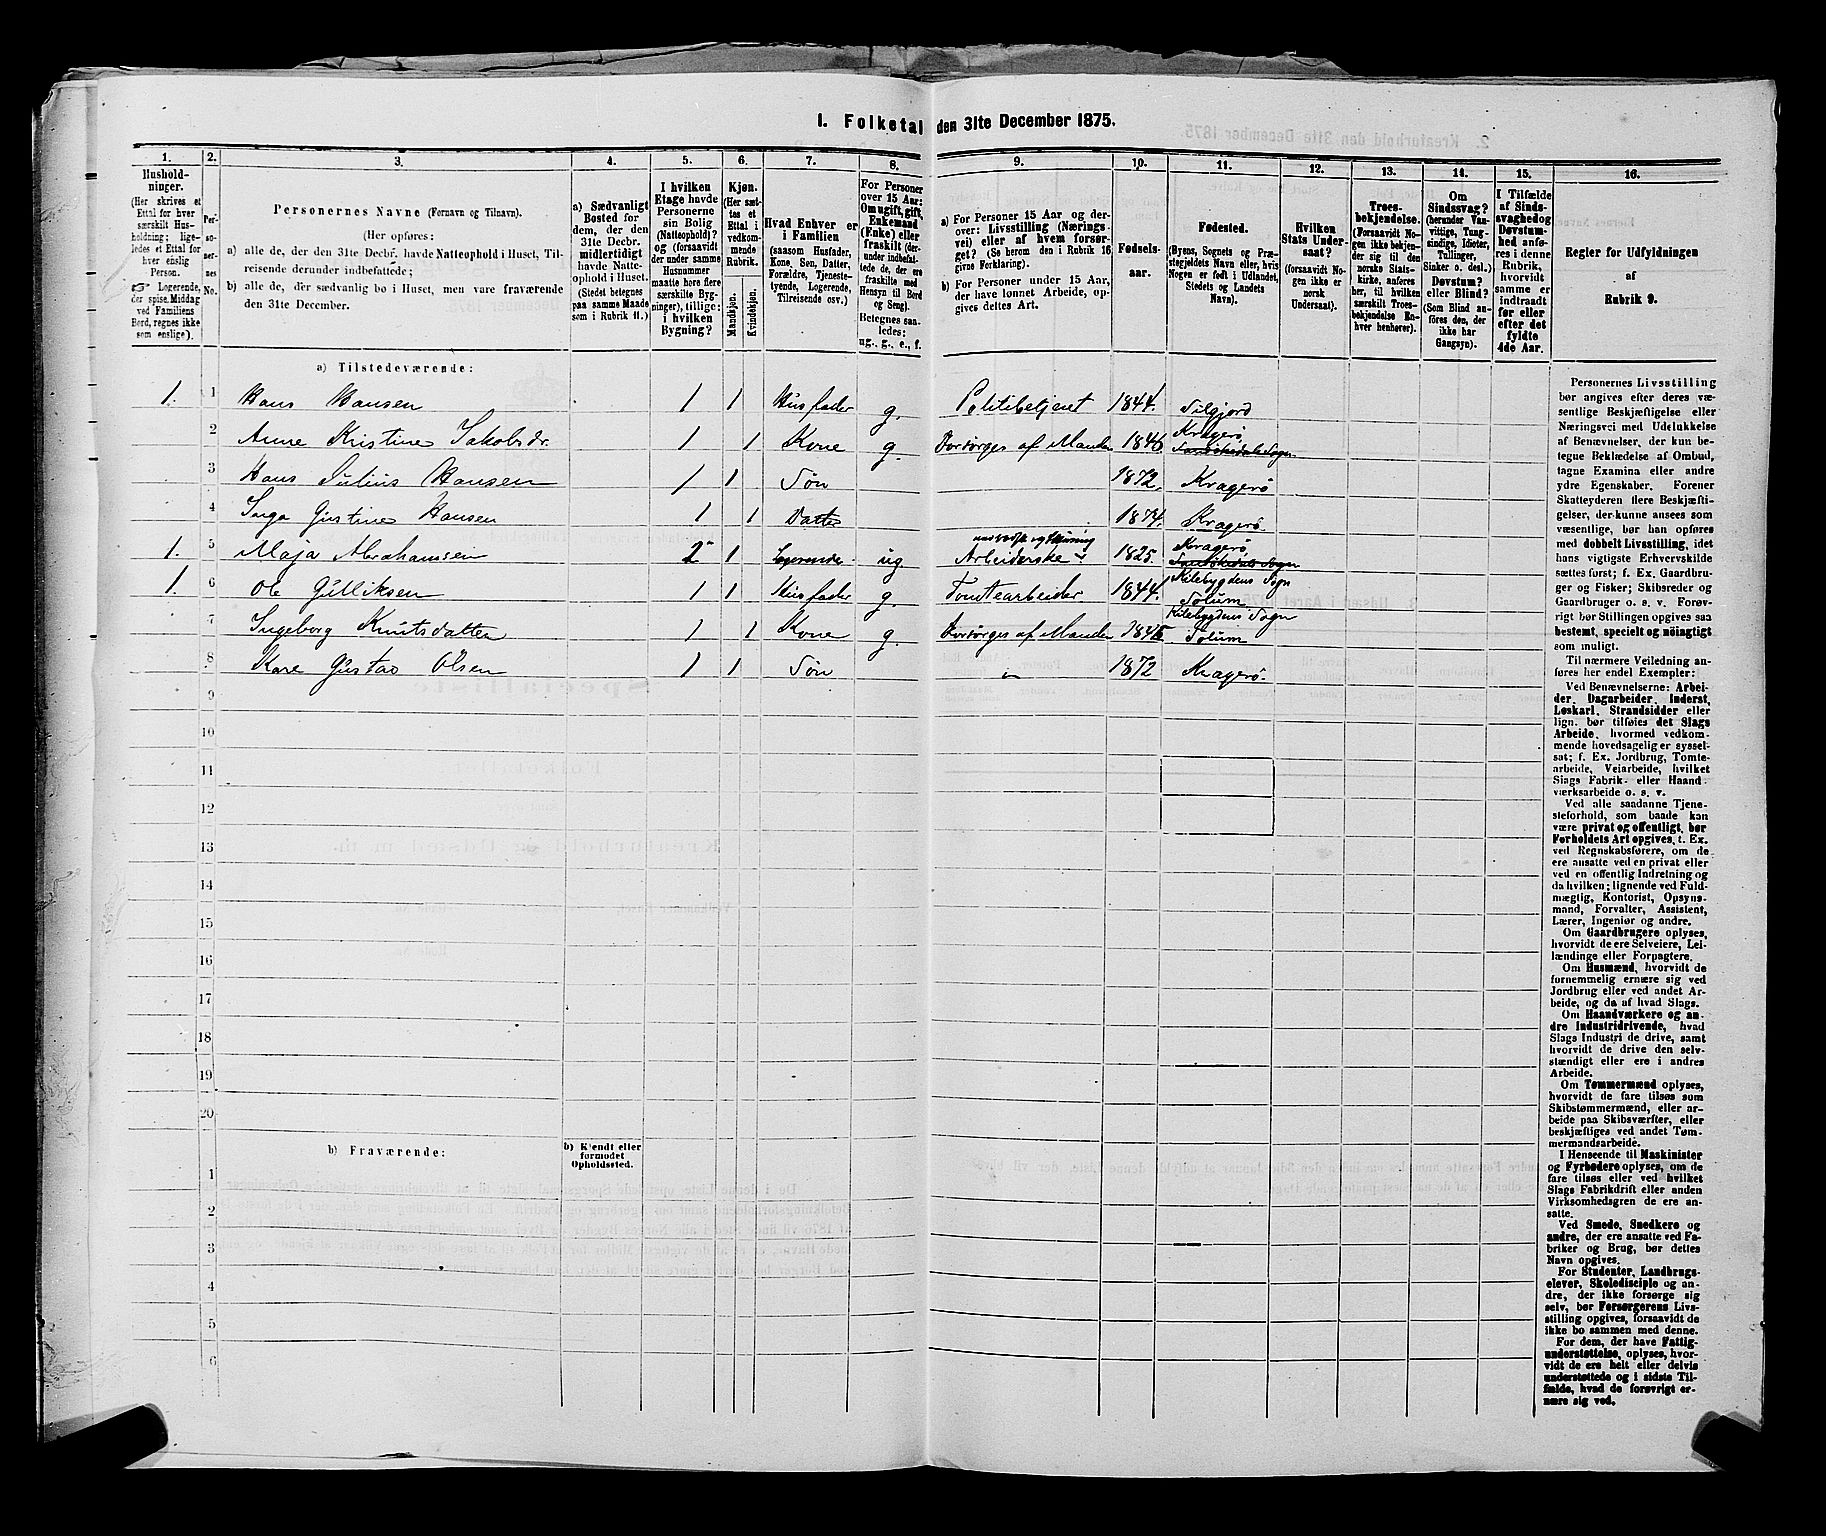 I. Folketal den 31te December 1875.
1. 2. 3. 4. 5. 6. 7. 8. 9. 10. 11. 12. 13. 14. 15. 16.
Husholdninger. (Her skrives et Ettal for hver særskilt Husholdning; ligeledes et Ettal for hver enslig Person. ☞ Logerende, der spise Middag ved Familiens Bord, regnes ikke som enslige).
Personernes No.
Personernes Navne (Fornavn og Tilnavn).
(Her opføres:
a) alle de, der den 31te Decbr. havde Natteophold i Huset, Tilreisende derunder indbefattede;
b) alle de, der sædvanlig bo i Huset, men vare fraværende den 31te December.
a) Sædvanligt Bosted for dem, der den 31te Decbr. midlertidigt havde Natteophold i Huset. (Stedet betegnes paa samme Maade som i Rubrik 11.)
I hvilken Etage havde Personerne sin Bolig (Natteophold)? og (forsaavidt der under samme Husnummer maatte høre flere særskilte Bygninger), tillige: i hvilken Bygning?
Kjøn. (Her sættes et Ettal i vedkommende Rubrik. Mandkjøn. Kvindekjøn.
Hvad Enhver er i Familien (saasom Husfader, Kone, Søn, Datter, Forældre, Tjenestetyende, Logerende, Tilreisende osv.)
For Personer over 15 Aar: Om ugift, gift, Enkemand (Enke) eller fraskilt (derunder indbefattede de, der ere fraskilte med Hensyn til Bord og Seng). Betegnes saaledes: ug., g., e., f.
a) For Personer 15 Aar og derover: Livsstilling (Næringsvei) eller af hvem forsørget? (Se herom den i Rubrik 16 givne Forklaring).
b) For Personer under 15 Aar, der have lønnet Arbeide, opgives dettes Art.
Fødselsaar.
Fødested. (Byens, Sognets og Præstegjeldets Navn eller, hvis Nogen er født i Udlandet, Stedets og Landets Navn).
Hvilken Stats Undersaat? (forsaavidt Nogen ikke er norsk Undersaat).
Troesbekjendelse. (Forsaavidt Nogen ikke bekjender sig til den norske Statskirke, anføres her, til hvilken særskilt Troesbekjendelse Enhver henhører).
Om Sindssvag? (herunder Vanvittige, Tungsindige, Idioter, Tullinger, Sinker o. desl.) Døvstum? eller Blind? (Som Blind anføres den, der ikke har Gangsyn).
I Tilfælde af Sindssvaghed og Døvstumhed anføres i denne Rubrik, hvorvidt samme er indtraadt før eller efter det fyldte 4de Aar.
Regler for Udfyldningen af Rubrik 9.
a) Tilstedeværende:
1. 1 Hans Hansen 1 1 Husfader g. Politibetjent 1844. Silgjord
2 Anne Kristine Jakobsdr. 1 1 Kone g. Forsørges af Manden 1846 Kragerø Sannikedals Sogn
3 Hans Julius Hansen 1 1 Søn 1872. Kragerø
4 Inga Gustine Hansen 1 1 Datter 1874. Kragerø.
1. 5 Maja Abrahamsen 2 1 Logerende ug Arbeiderske 1825. Kragerø Sannikedals Sogn
1. 6 Ole Gulliksen 1 1 Husfader g. Tomtearbeider 1844. Kilebygdens Sogn Solum
7 Ingeborg Knutsdatter 1 1 Kone g. Forsørges af Manden 1846 Kilebygdens Sogn Solum
8 Kare Gustav Olsen 1 1 Søn 1872 Kragerø.
9
10
11
12
13
14
15
16
17
18
19
20
b) Fraværende:
b) Kjendt eller formodet Opholdssted.
1
2
3
4
5
6
Personernes Livsstilling
bør angives efter deres væ-
sentlige Beskjæftigelse eller
Næringsvei med Udelukkelse
af Benævnelser, der kun be-
tegne Beklædelse af Ombud,
tagne Examina eller andre
ydre Egenskaber. Forener
Skatteyderen flere Beskjæfti-
gelser, der kunne ansees som
væsentlige, bør han opføres
med dobbelt Livsstilling, idet
hans vigtigste Erhvervskilde
sættes først; f. Ex. Gaardbru-
ger og Fisker; Skibsreder og
Gaardbruger o. s. v. Forøv-
rigt bør Stillingen opgives saa
bestemt, specielt og nøiagtigt
som muligt.
Til nærmere Veiledning an-
føres her endel Exempler:
Ved Benævnelserne: Arbei-
der, Dagarbeider, Inderst,
Løskarl, Strandsidder eller
lign. bør tilføies det Slags
Arbeide, hvormed vedkom-
mende hovedsagelig er syssel-
sat; f. Ex. Jordbrug, Tomte-
arbeide, Veiarbeide, hvilket
Slags Fabrik- eller Haand-
værksarbeide o. s. v.
Ved alle saadanne Tjene-
steforhold, som baade kan
være privat og offentligt, bør
Forholdets Art opgives, t. Ex.
ved Regnskabsførere, om de
ere ansatte ved en privat eller
ved en offentlig Indretning og
da hvilken; lignende ved Fuld-
mægtig, Kontorist, Opsyns-
mand, Forvalter, Assistent,
Lærer, Ingeniør og andre.
Om Gaardbrugere oplyses,
hvorvidt de ere Selveiere, Lei-
lændinge eller Forpagtere.
Om Husmænd, hvorvidt de
fornemmelig ernære sig ved
Jordbrug eller ved andet Ar-
beide, og da af hvad Slags.
Om Haandværkere og an-
dre Industridrivende, hvad
Slags Industri de drive, samt
hvorvidt de drive den selv-
stændigt eller ere i andres
Arbeide.
Om Tømmermænd oplyses,
hvorvidt de fare tilsøs som
Skibstømmermænd, eller ar-
beide paa Skibsværfter, eller
beskjæftiges ved andet Tøm-
mermandsarbeide.
I Henseende til Maskinister
og Fyrbødere oplyses, om de
fare tilsøs eller ved hvilket
Slags Fabrikdrift eller anden
Virksomhedsgren de ere an-
satte.
Ved Smede, Snedkere og
andre, der ere ansatte ved Fa-
briker og Brug, bør dettes
Navn opgives.
For Studenter, Landbrugs-
elever, Skoledisciple og an-
dre, der ikke forsørge sig
selv, bør Forsørgerens Livs-
stilling opgives, forsaavidt de
ikke bo sammen med denne.
For dem, der have Fattig-
understøttelse, oplyses, hvor-
vidt de ere helt eller delvis
understøttede og i sidste Til-
fælde, hvad de forøvrigt er-
nære sig ved.